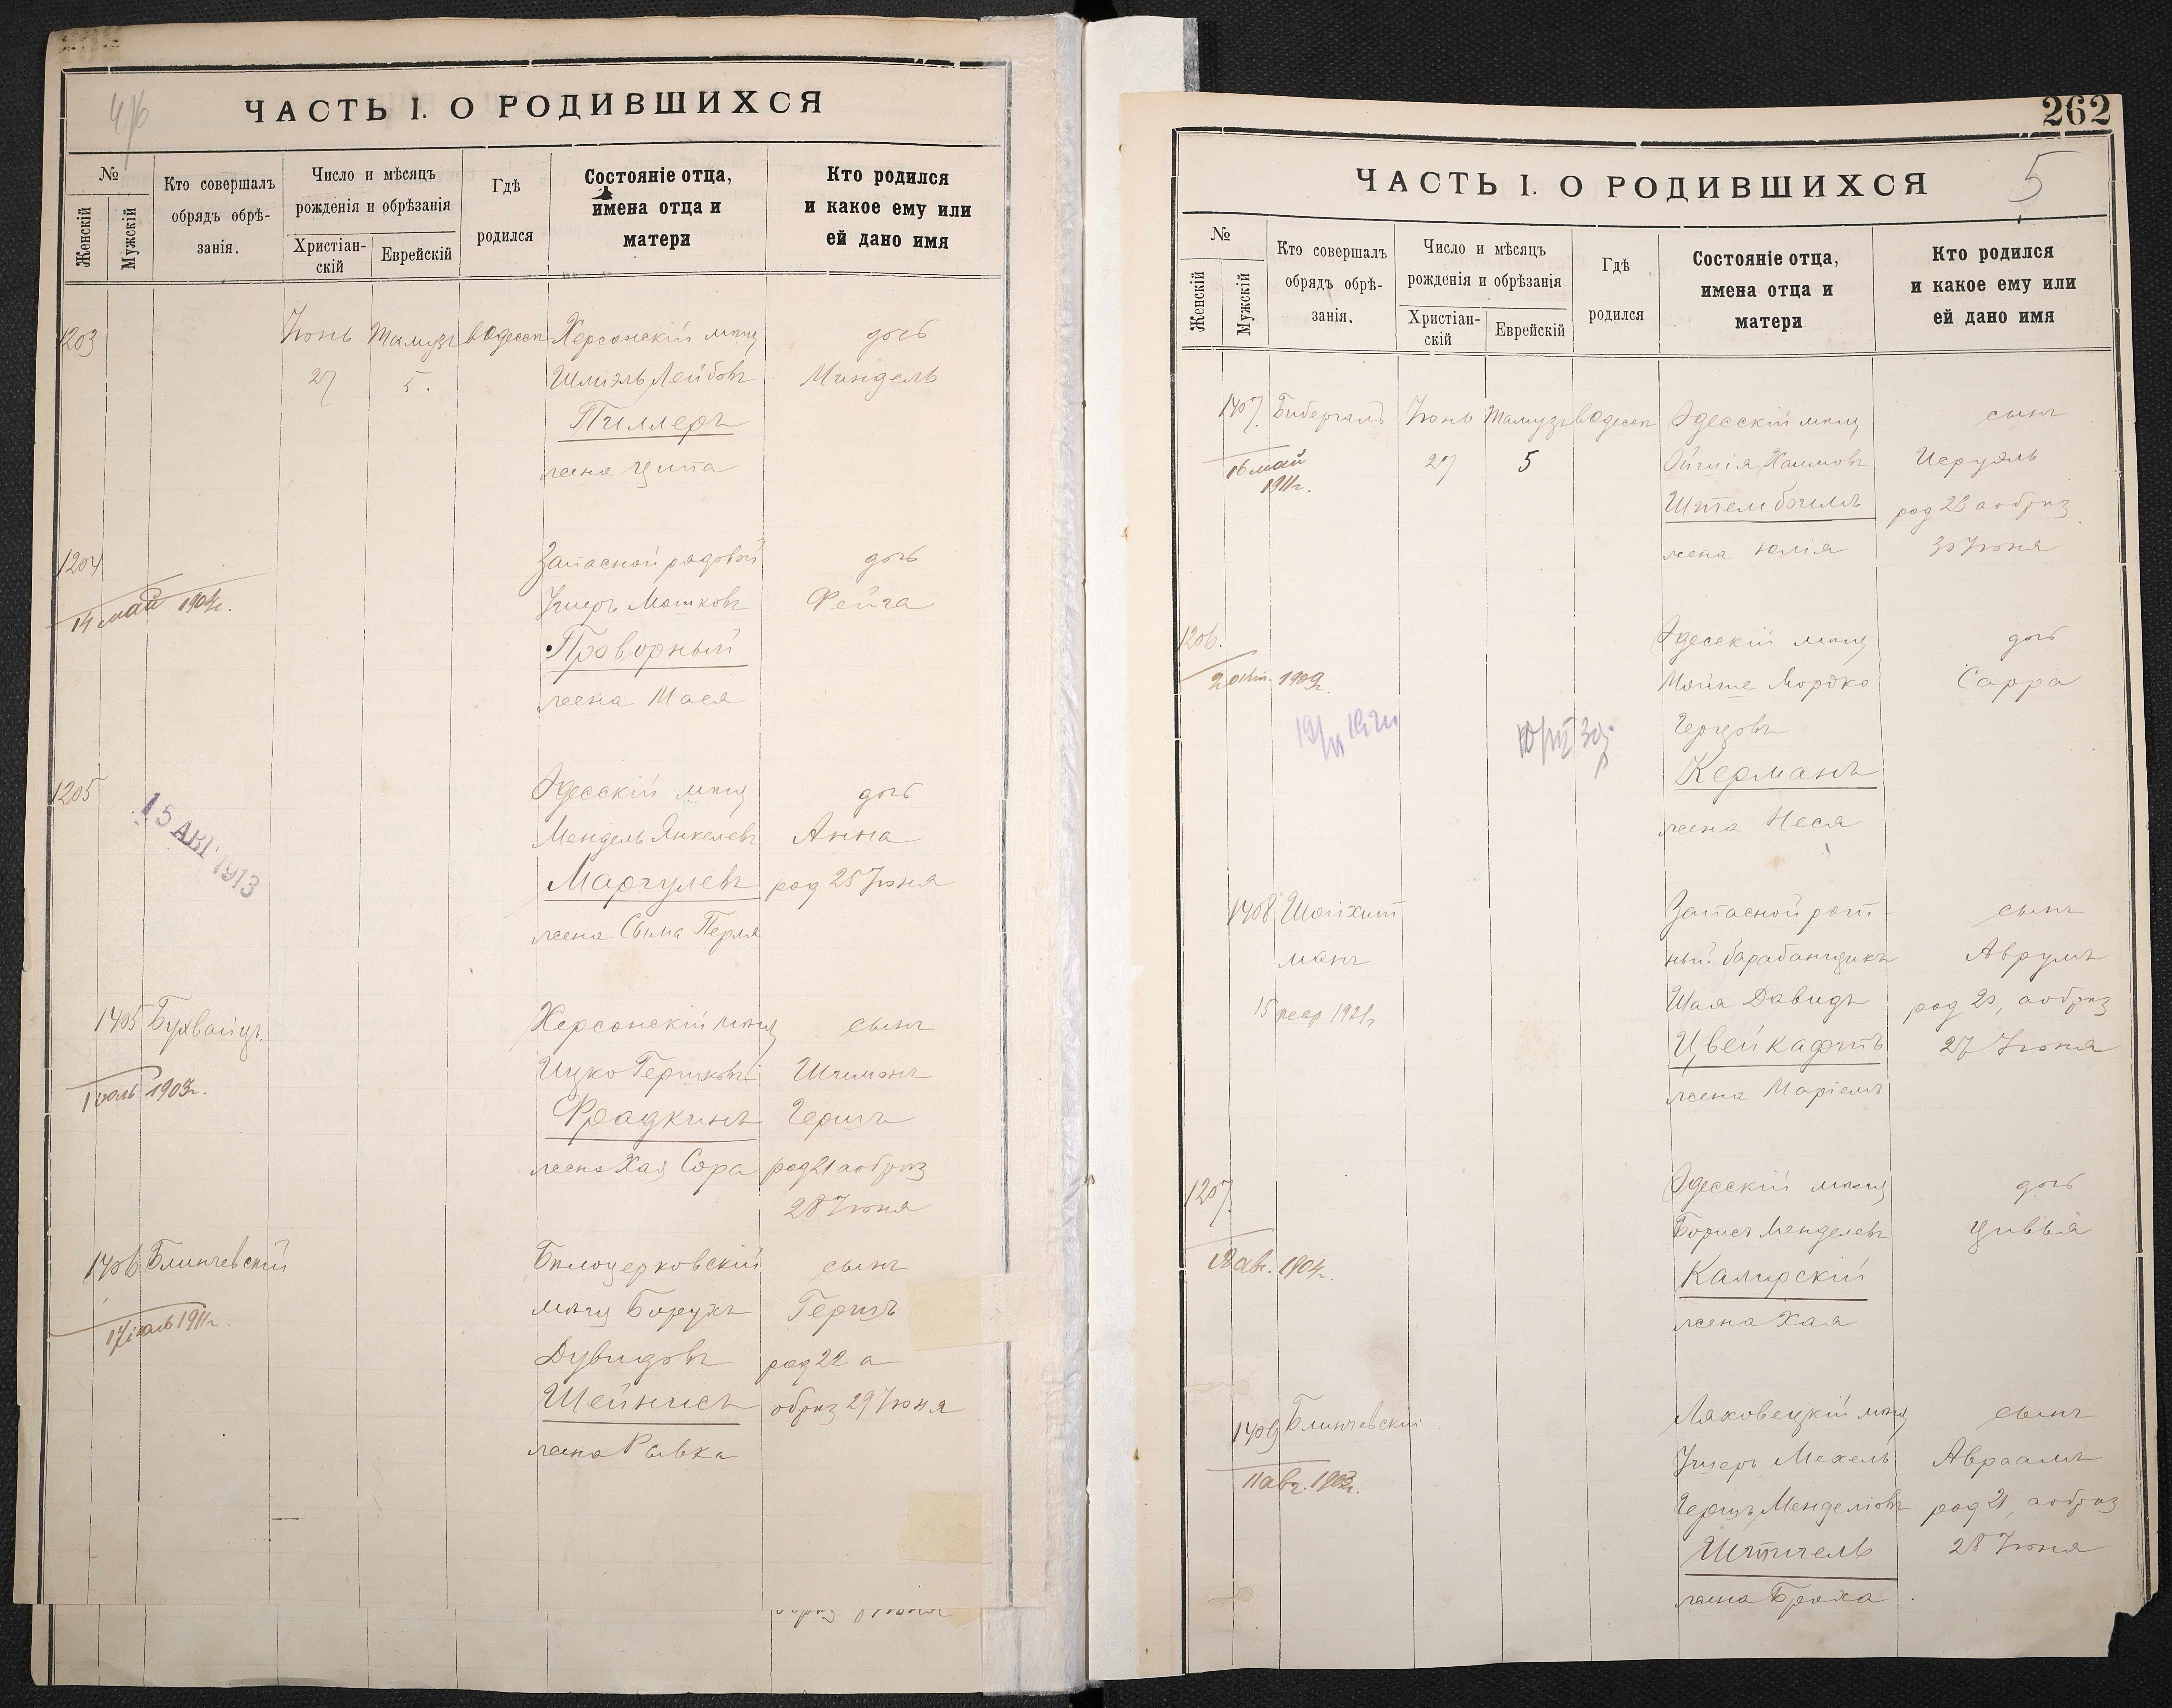 ЧАСТЬ I. О РОДИВШИХСЯ
№
Женскій
Мужскій
Кто совершалъ
обрядъ обрѣ-
занія.
Число и мѣсяцъ
рожденія и обрѣзанія
Христіан-
скій
Еврейскій
Гдѣ
родился
Состояніе отца,
имена отца и
матери
Кто родился
и какое ему или
ей дано имя
1203 Іюнь Тамузъ въ Одессѣ Херсонскій мѣщ дочь
27 5. Шміэль Лейбовъ Миндель
Пиллеръ
жена Ципа
1204 Запасной рядовой дочь
14 май 1904г. Ушеръ Мошковъ Фейга
Проворный
жена Мася
1205 Одесскій мѣщ дочь
15 АВГ 1913 Мендель Янкелевъ Анна
Маргулевъ род 25 Іюня
жена Сыма Перля
1405 Бухвайцъ. Херсонскій мѣщ сынъ
Ицко Гершковъ Шимонъ
1 іюль 1903г. Фрадкинъ Гершъ
жена Хая Сора род 21 а обрѣз
28 Іюня
1406 Блинчевскій Бѣлоцерковскій сынъ
мѣщ Борухъ Гершъ
17 іюль 1911г. Дувидовъ род 22 а
Шейнисъ обрѣз 29 Іюня
жена Рывка
262
5
ЧАСТЬ I. О РОДИВШИХСЯ
№
Женскій
Мужскій
Кто совершалъ
обрядъ обрѣ-
занія.
Число и мѣсяцъ
рожденія и обрѣзанія
Христіан-
скій
Еврейскій
Гдѣ
родился
Состояніе отца,
имена отца и
матери
Кто родился
и какое ему или
ей дано имя
1407. Бибергалъ Іюнь Тамузъ въ Одессѣ Одесскій мѣщ сынъ
16 май 27 5 Хаимовъ
1911г. род 23 а обрѣз
жена Юлія 30 Іюня
1206. Одесскій мѣщ дочь
1909г. Мойше Мордко Сарра
Герцовъ
Керманъ
жена Неся
1408 Шойхит Запасной рот- сынъ
манъ ный барабанщикъ Аврумъ
15 февр. 1921г Шая Давидъ а обрѣз
Цвейкафтъ 27 Іюня
жена Маріемъ
1207. Одесскій мѣщ дочь
Борисъ Менделевъ Цивья
1904г. Калирскій
жена Хая
1409 Блинчевскій Ляховецкій мѣщ сынъ
Ушеръ Мехель Авраамъ
11 авг. 1903г. Герцъ Менделіовъ род 21, а обрѣз
28 Іюня
жена Броха